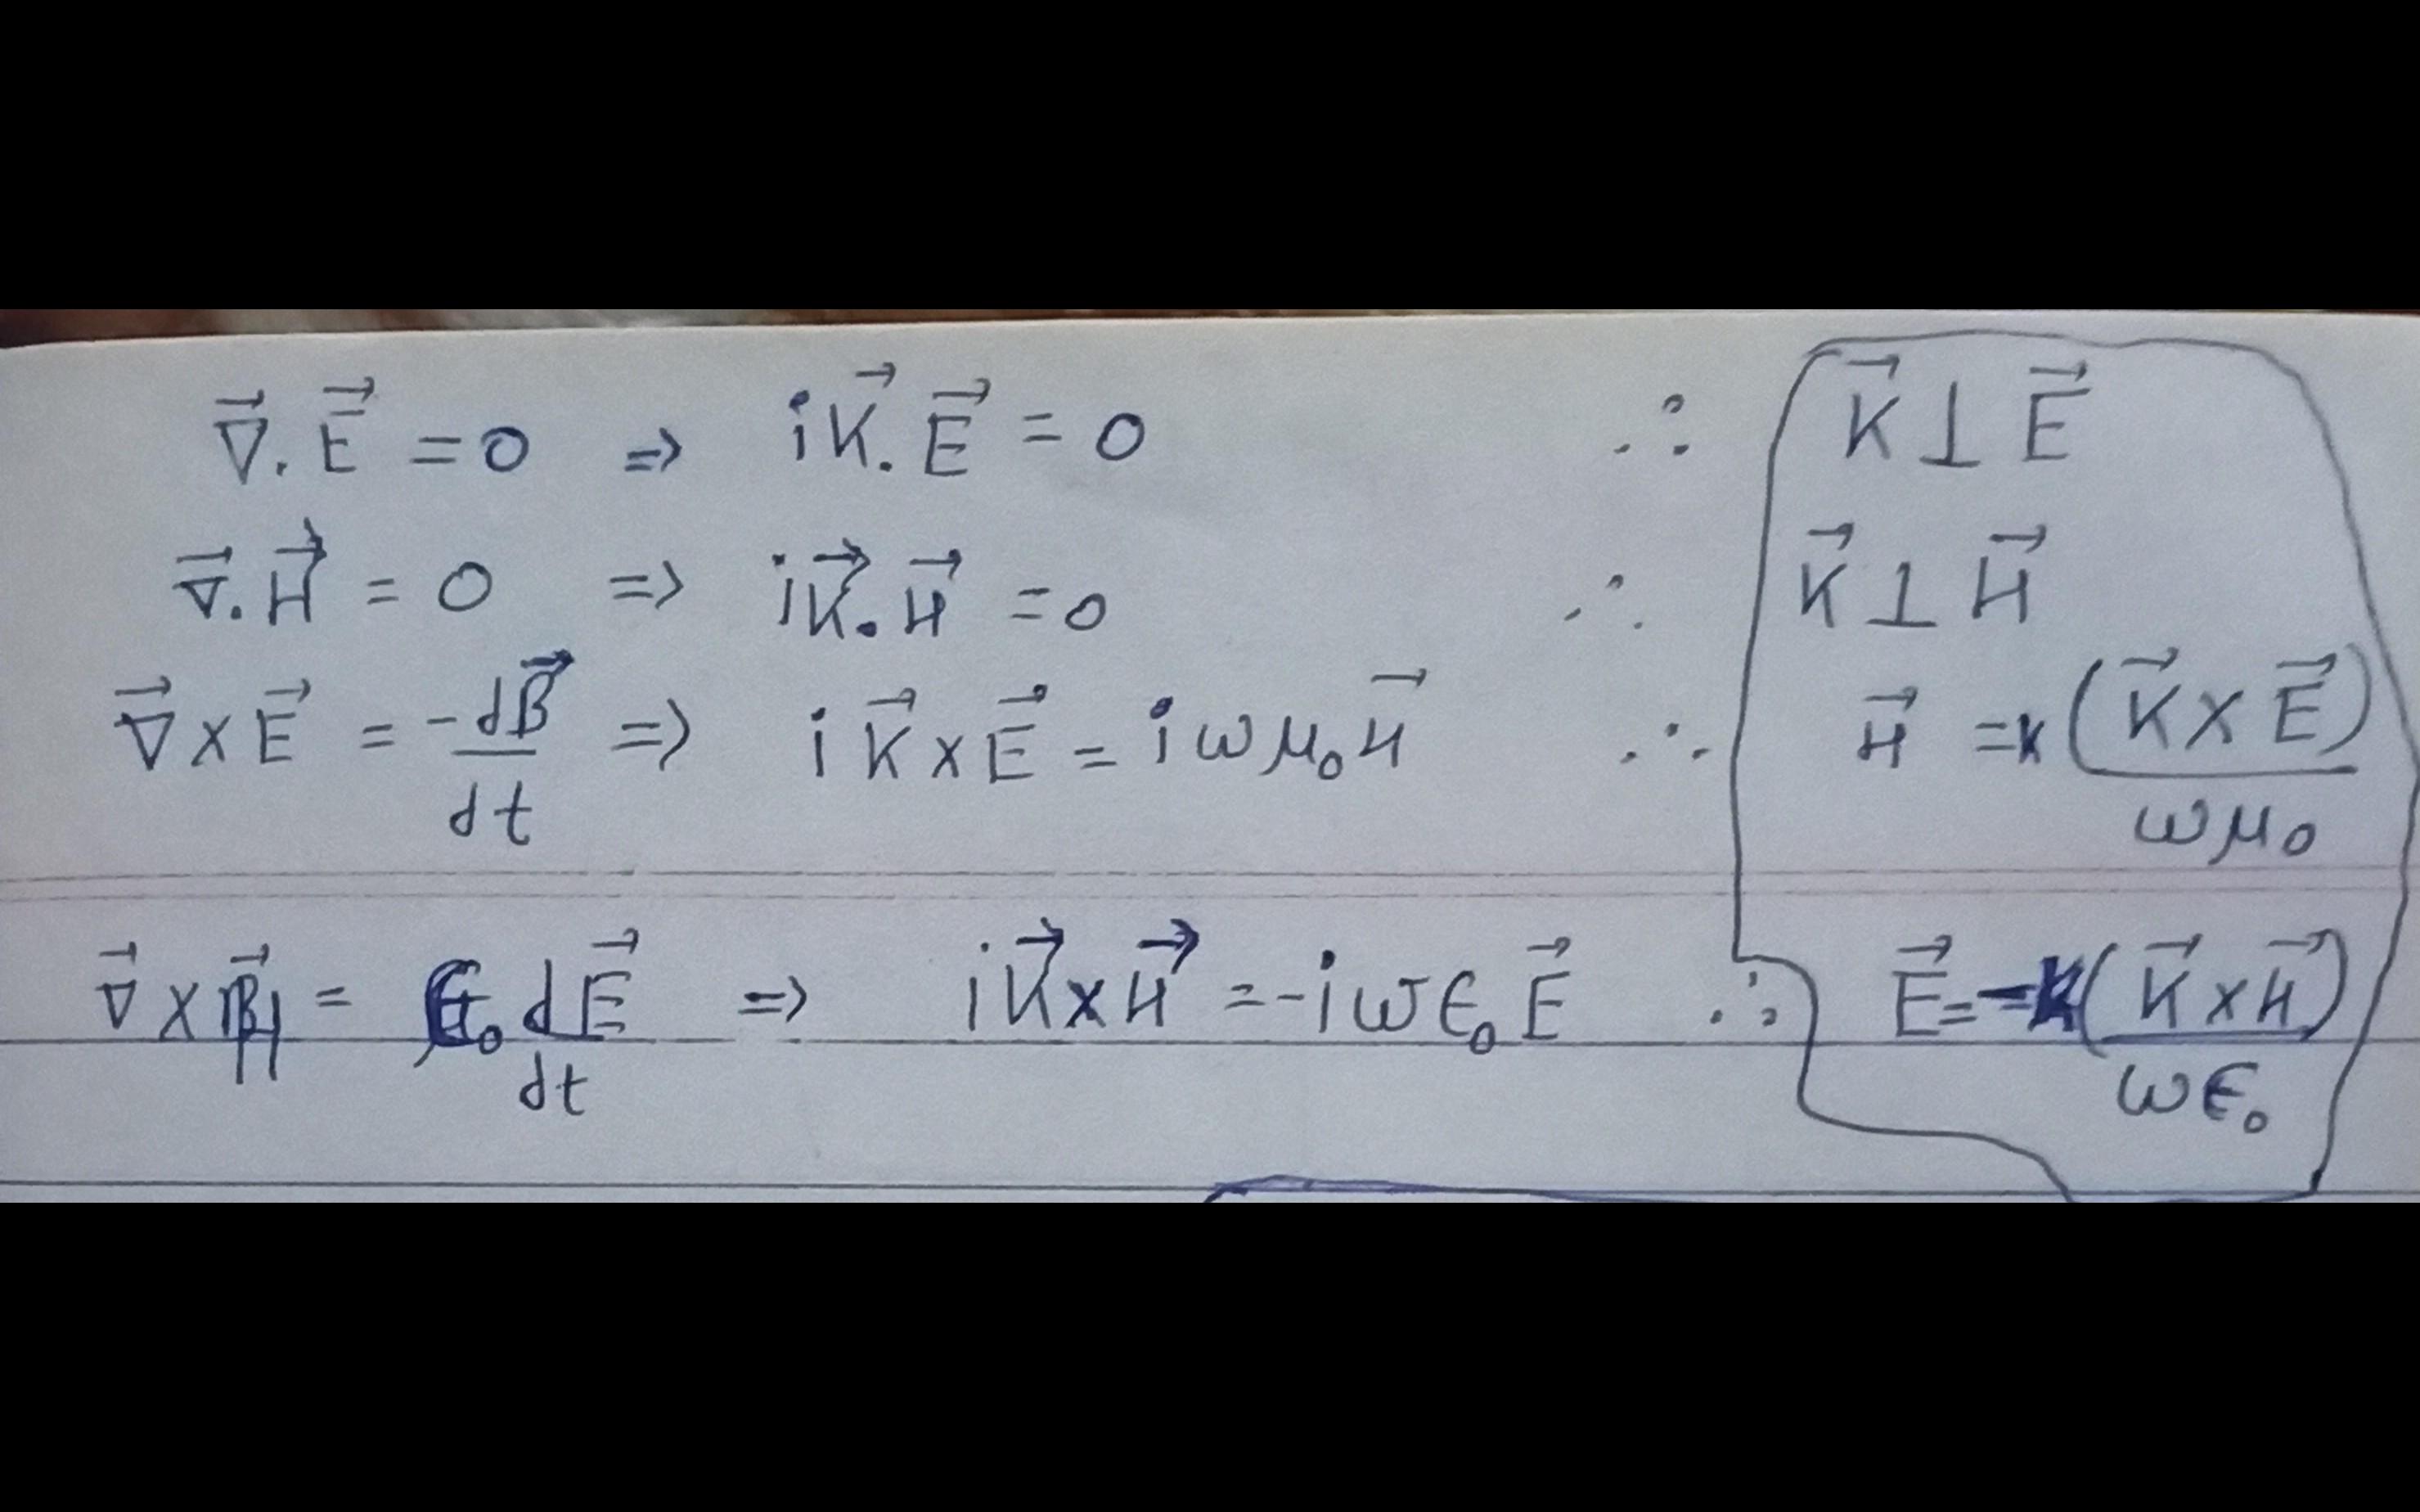 ∇⃗ . E⃗ = 0 ⇒ iK⃗ . E⃗ = 0 ∴ K⃗ ⊥ E⃗
∇⃗ . H⃗ = 0 ⇒ iK⃗ . H⃗ = 0 ∴ K⃗ ⊥ H⃗
∇⃗ × E⃗ = -dB⃗/dt ⇒ i K⃗ × E⃗ = i ω μ₀ H⃗ ∴ H⃗ = k (K⃗ × E⃗)/ωμ₀
∇⃗ × H⃗ = ϵ₀ dE⃗/dt ⇒ iK⃗ × H⃗ = -i ω ϵ₀ E⃗ ∴ E⃗ = -k (K⃗ × H⃗)/ωϵ₀